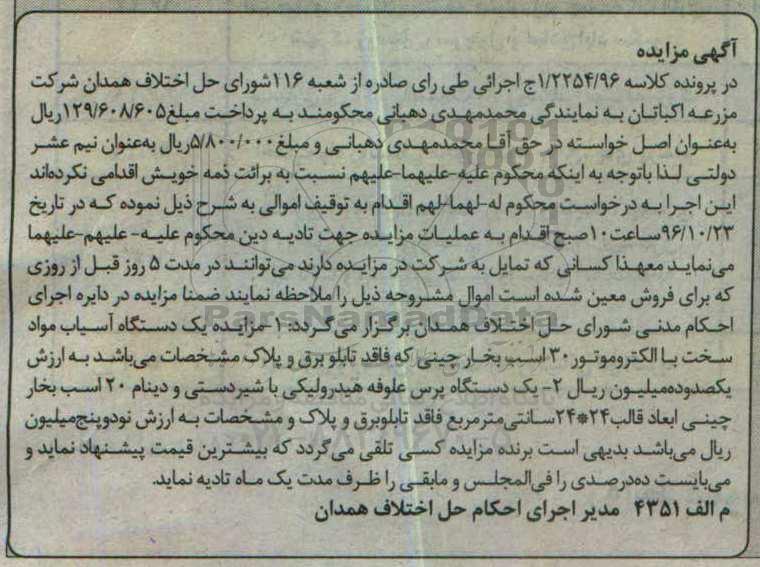 آگهی مزایده
در پرونده کلاسه ۱/۲۲۵۴/۹۶ج اجرائی طی رای صادره از شعبه ۱۱۶شورای حل اختلاف همدان شرکت
مزرعه اکباتان به نمایندگی محمدمهدی دهبانی محکومند به پرداخت مبلغ۱۲۹/۶۰۸/۶۰۵ریال
به‌عنوان اصل خواسته در حق آقا محمدمهدی دهبانی و مبلغ۵/۸۰۰/۰۰۰ریال به‌عنوان نیم عشر
دولتی لذا باتوجه به اینکه محکوم علیه-علیهما-علیهم نسبت به برائت ذمه خویش اقدامی نکرده‌اند
این اجرا به درخواست محکوم له-لهما-لهم اقدام به توقیف اموالی به شرح ذیل نموده که در تاریخ
۹۶/۱۰/۲۳ساعت۱۰صبح اقدام به عملیات مزایده جهت تادیه دین محکوم علیه- علیهم-علیهما
می‌نماید معهذا کسانی که تمایل به شرکت در مزایده دارند می‌توانند در مدت ۵ روز قبل از روزی
که برای فروش معین شده است اموال مشروحه ذیل را ملاحظه نمایند ضمنا مزایده در دایره اجرای
احکام مدنی شورای حل اختلاف همدان برگزار می‌گردد: ۱-مزایده یک دستگاه آسیاب مواد
سخت با الکتروموتور۳۰ اسب بخار چینی که فاقد تابلو برق و پلاک مشخصات می‌باشد به ارزش
یکصدوده‌میلیون ریال ۲- یک دستگاه پرس علوفه هیدرولیکی با شیردستی و دینام ۲۰ اسب بخار
چینی ابعاد قالب۲۴*۲۴سانتی‌مترمربع فاقد تابلوبرق و پلاک و مشخصات به ارزش نودوپنج‌میلیون
ریال می‌باشد بدیهی است برنده مزایده کسی تلقی می‌گردد که بیشترین قیمت پیشنهاد نماید و
می‌بایست ده‌درصدی را فی‌المجلس و مابقی را ظرف مدت یک ماه تادیه نماید.
م الف ۴۳۵۱ مدیر اجرای احکام حل اختلاف همدان
ParsNamadData